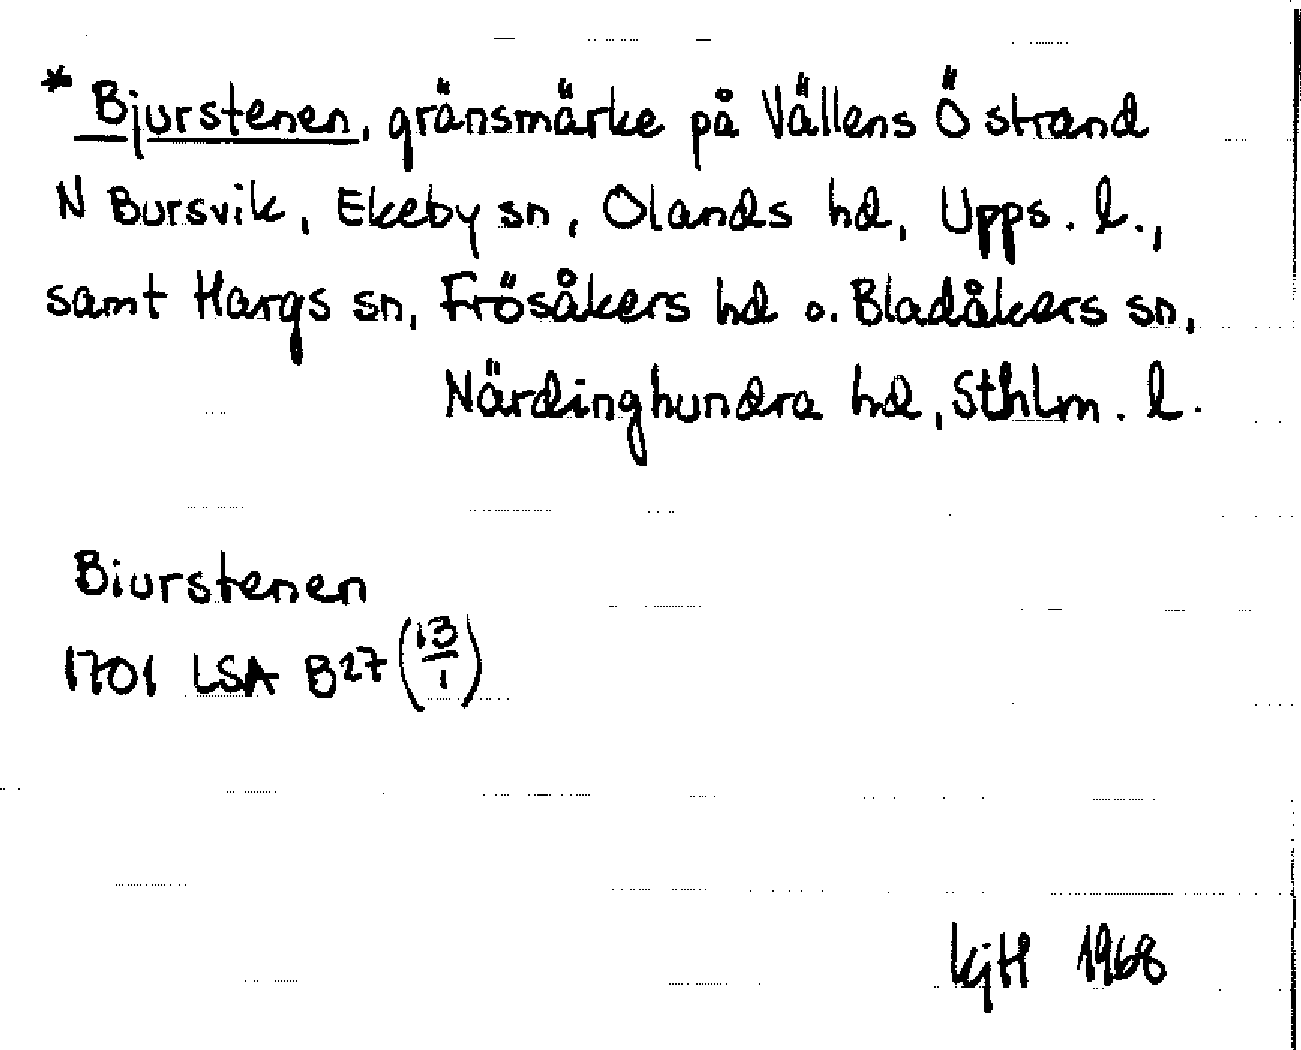 * Bjurstenen, gränsmärke på Vällens Ö strand
N Bursvik, Ekeby sn, Olands hd, Upps. l.,
samt Hargs sn, Frösåkers hd o. Bladåkers sn,
Närdinghundra hd, Sthlm. l.
Biurstenen
1701 LSA B27 (13/1)
KjH 1968